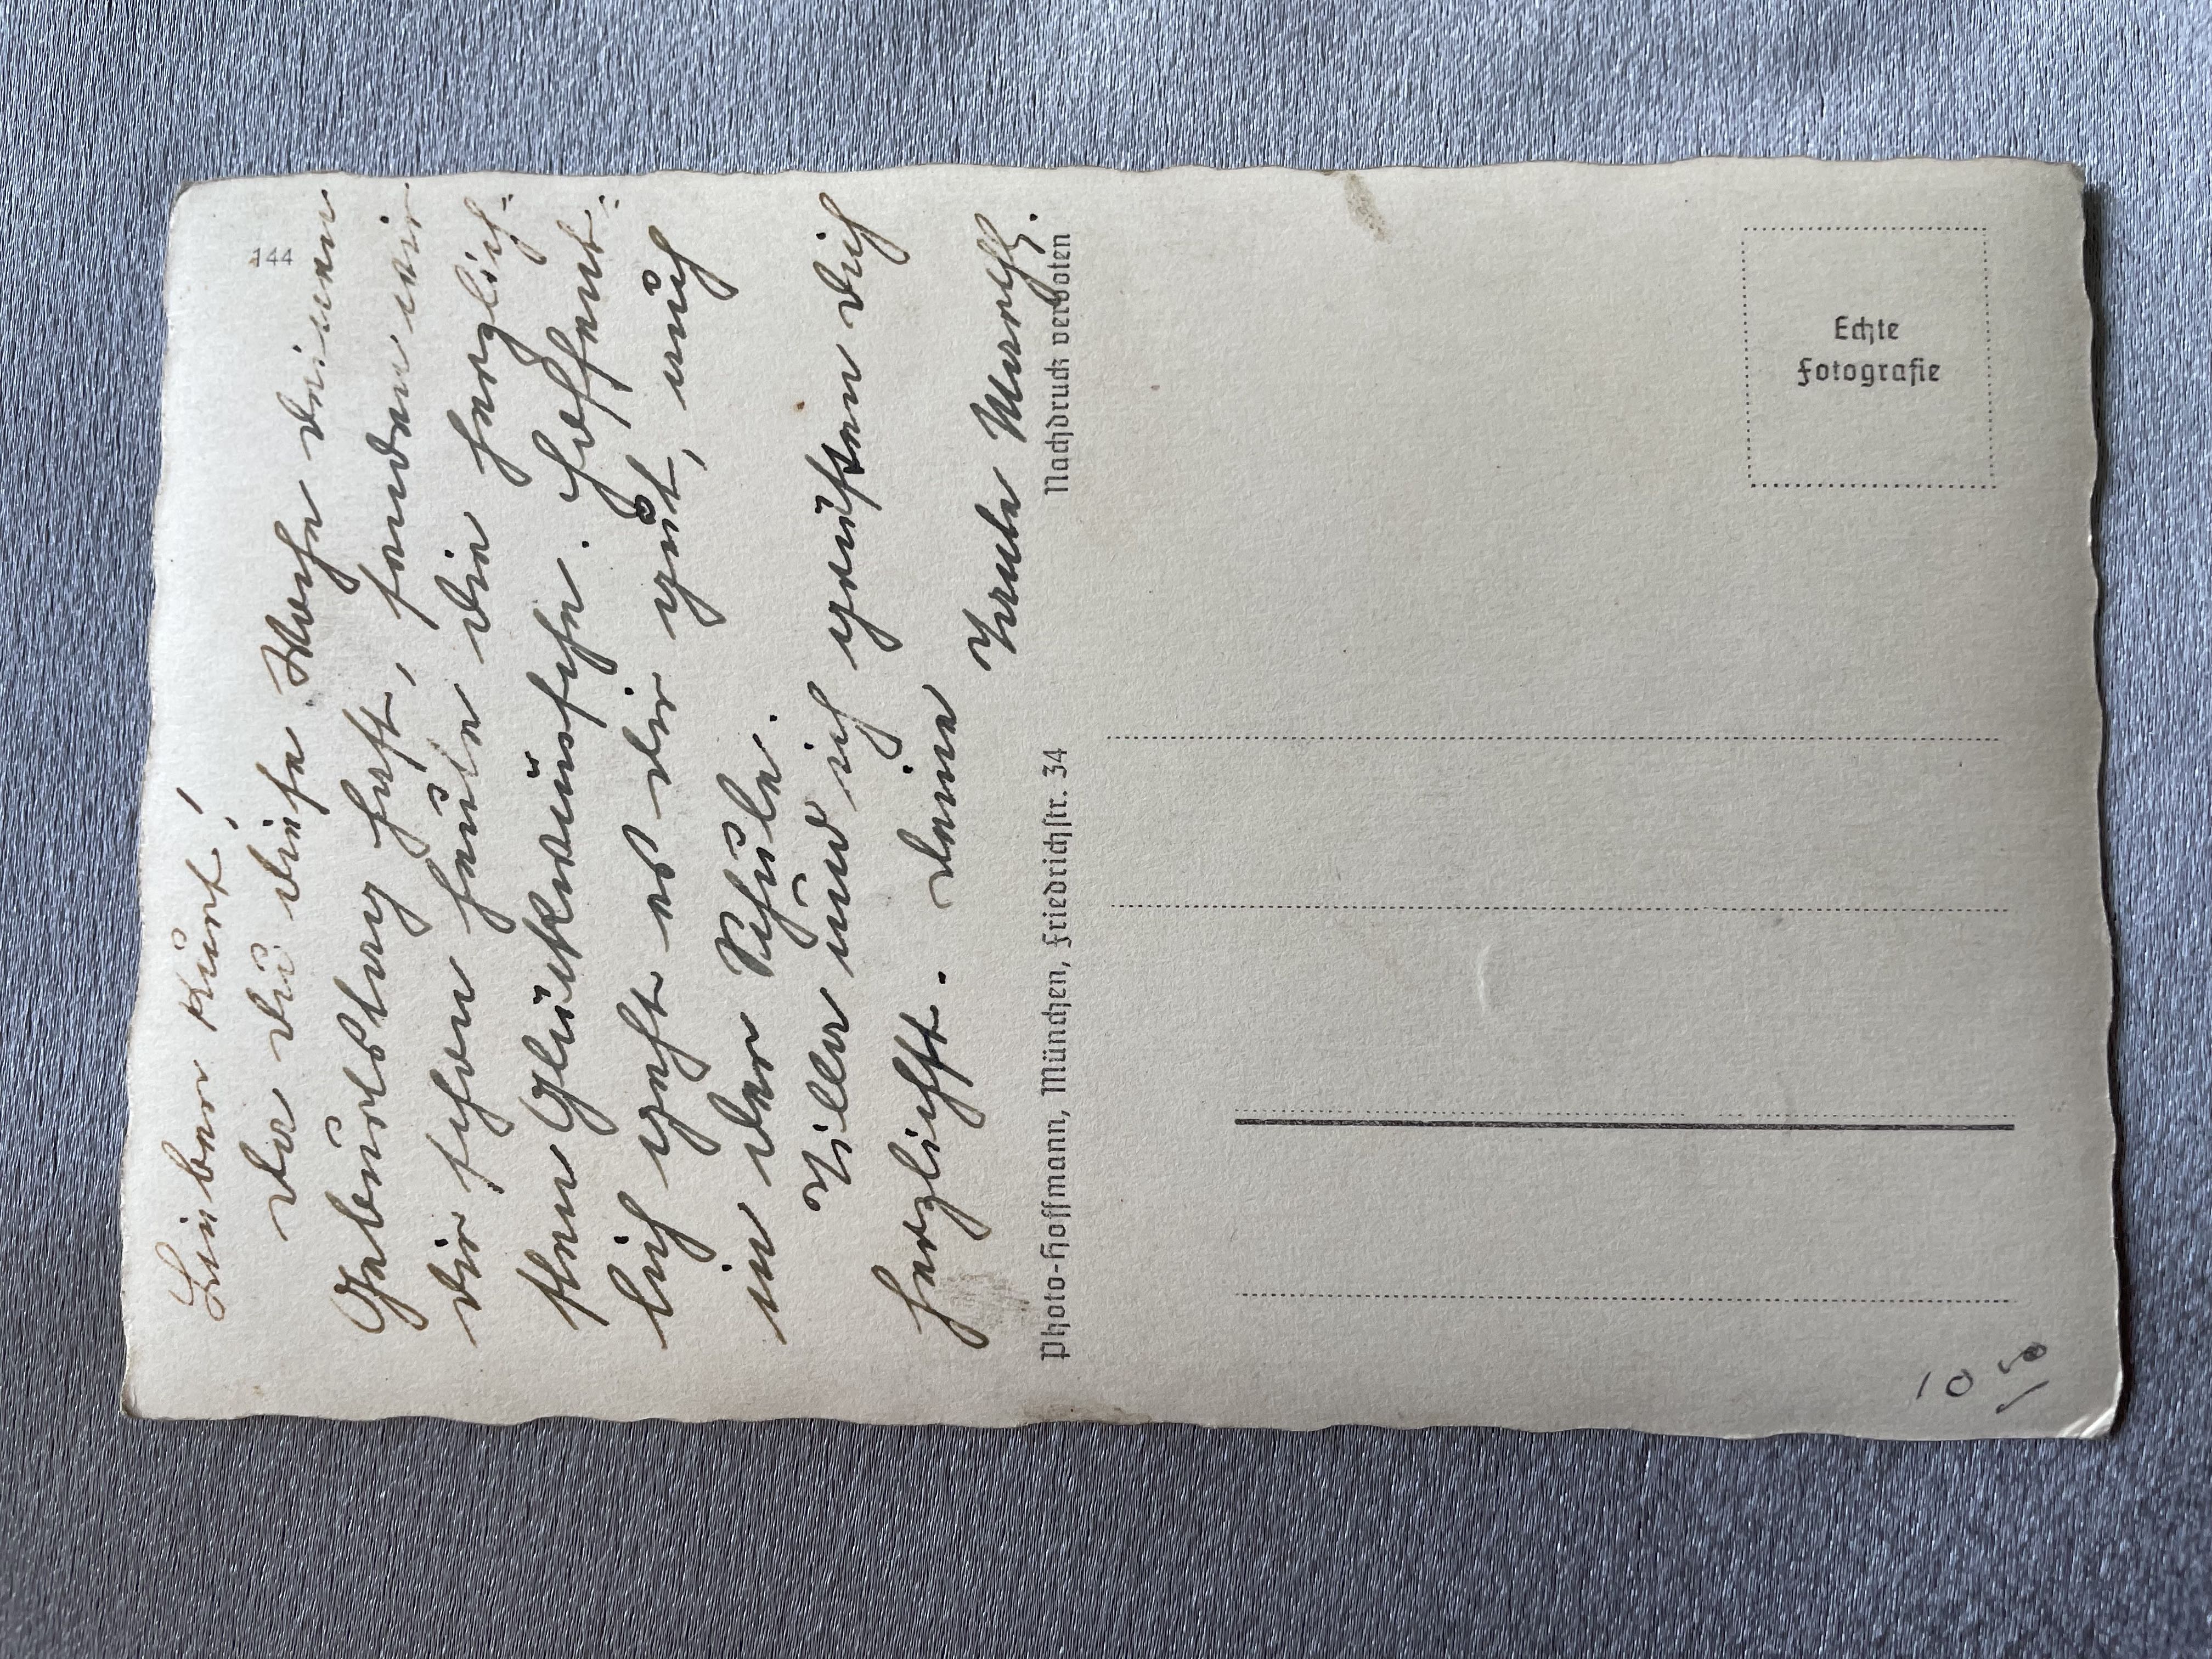 144
Lieber Kurt!
Da du diese Woche deinen
Geburtstag hast, senden wir
dir schon heute die herzlich=
sten Glückwünsche. Hoffent=
lich geht es dir gut, auch
in der Schule.
Tilla und ich grüßen dich
herzlichst. Deine Tante
Photo-Hoffmann, München, Friedrichstr. 34
Nachdruck verboten
Echte
Fotografie
10 50